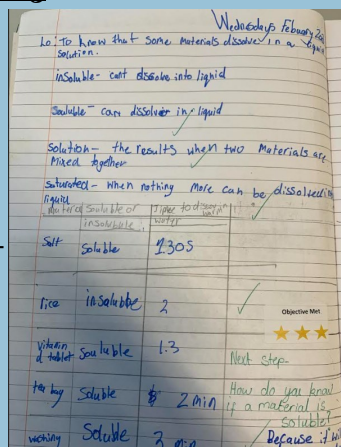 Wednesday Febuary 2nd
Lo: To know that some materials dissolve in a liquid
solution.
insoluble- cant dissolve into liqnid
Souluble- can dissolve in liquid
Solution- the results when two Materials are
Mixed together
saturated- when nothing More can be dissolved in
liquid
Material Souluble or Time to dissolve
insoluble water
Salt Soluble 130s
rice insoluble 2
Vitamin d tablet Souluble 1.3
tea bag Soluble 2 min
Soluble 3 min
Objective Met
Next step-
How do you know
if a material is
soluble?
Because it